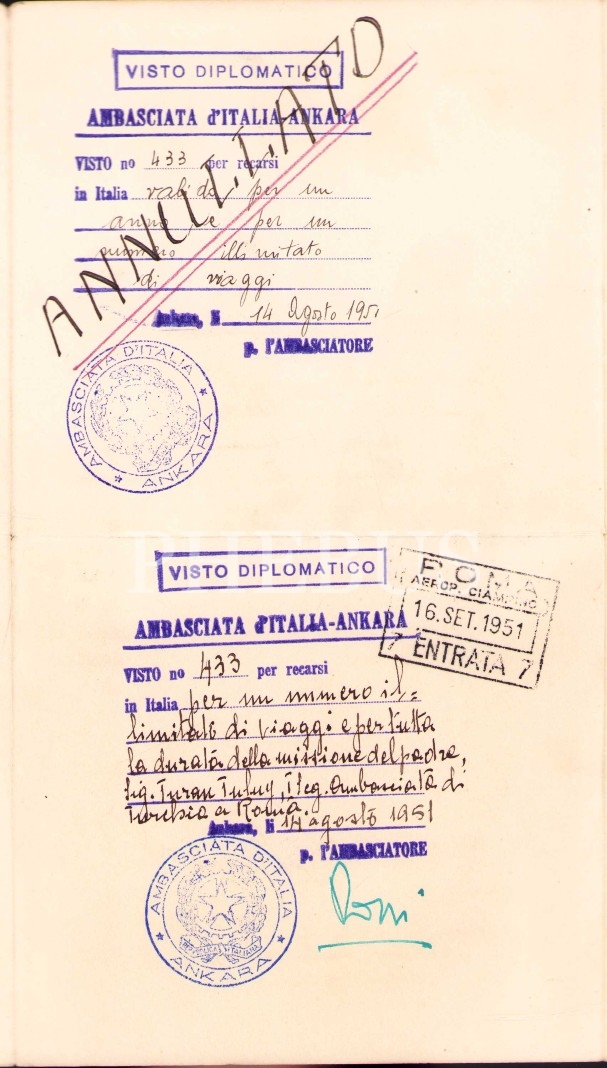 VISTO DIPLOMATICO
AMBASCIATA d'ITALIA-ANKARA
VISTO no 433 per recarsi
in Italia valido per un
anno e per un
numero illimitato
di viaggi
Ankara, li 14 Agosto 1951
p. l'AMBASCIATORE
ANNULLATO
AMBASCIATA D'ITALIA
ANKARA
PHEBUS
VISTO DIPLOMATICO
ROMA
AEROP. CIAMPINO
16.SET.1951
7 ENTRATA 7
AMBASCIATA d'ITALIA-ANKARA
VISTO no 433 per recarsi
in Italia per un numero il=
limitato di viaggi e per tutta
la durata della missione del padre,
Sig. Turan Tuluy, Ambasciata di
Turchia a Roma.
Ankara, li 14 agosto 1951
p. l'AMBASCIATORE
AMBASCIATA D'ITALIA
REPVBBLICA ITALIANA
ANKARA